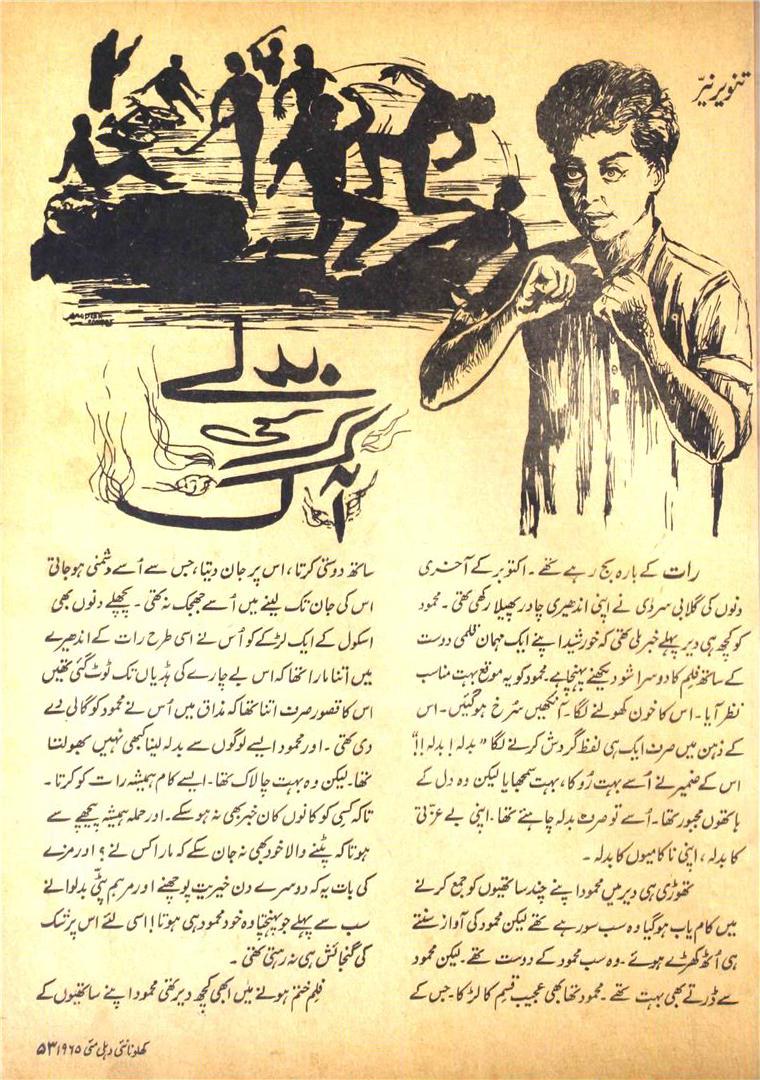 تنویر نیّر
بدلے
کی
آگ
رات کے بارہ بج رہے تھے۔ اکتوبر کے آخری
دنوں کی گلابی سردی نے اپنی اندھیری چادر پھیلا رکھی تھی۔ محمود
کو کچھ ہی دیر پہلے خبر ملی تھی کہ خورشید اپنے ایک مہمان فلمی دوست
کے ساتھ فلم کا دوسرا شو دیکھنے پہنچا ہے۔ محمود کو یہ موقع بہت مناسب
نظر آیا۔ اس کا خون کھولنے لگا۔ آنکھیں سُرخ ہوگئیں۔ اس
کے ذہن میں صرف ایک ہی لفظ گردش کرنے لگا "بدلہ! بدلہ!!"
اس کے ضمیر نے اُسے بہت رُوکا، بہت سمجھایا لیکن وہ دل کے
ہاتھوں مجبور تھا۔ اُسے تو صرف بدلہ چاہئے تھا۔ اپنی بے عزّتی
کا بدلہ، اپنی ناکامیوں کا بدلہ۔
تھوڑی ہی دیر میں محمود اپنے چند ساتھیوں کو جمع کرنے
میں کام یاب ہوگیا وہ سب سو رہے تھے لیکن محمود کی آواز سنتے
ہی اُٹھ کھڑے ہوئے۔ وہ سب محمود کے دوست تھے۔ لیکن محمود
سے ڈرتے بھی بہت تھے۔ محمود تھا بھی عجیب قسم کا لڑکا۔ جس کے
ساتھ دوستی کرتا، اس پر جان دیتا، جس سے اُسے دُشمنی ہوجاتی
اس کی جان تک لینے میں اُسے جھجک نہ تھی۔ پچھلے دنوں بھی
اسکول کے ایک لڑکے کو اُس نے اسی طرح رات کے اندھیرے
میں اتنا مارا تھا کہ اس بے چارے کی ہڈیاں تک ٹوٹ گئی تھیں
اس کا قصور صرف اتنا تھا کہ مذاق میں اُس نے محمود کو گالی دے
دی تھی۔ اور محمود ایسے لوگوں سے بدلہ لینا کبھی نہیں بھولتا
تھا۔ لیکن وہ بہت چالاک تھا۔ ایسے کام ہمیشہ رات کو کرتا۔
تاکہ کسی کو کانوں کان خبر بھی نہ ہو سکے۔ اور حملہ ہمیشہ پیچھے سے
ہوتا کہ پٹنے والا خود بھی نہ جان سکے کہ مارا کس نے؟ اور مزے
کی بات یہ کہ دوسرے دن خیریت پوچھنے اور مرہم پٹّی بدلوانے
سب سے پہلے جو پہنچتا وہ خود محمود ہی ہوتا! اسی لئے اس پر شک
کی گنجائش ہی نہ رہتی تھی۔
فلم ختم ہونے میں ابھی کچھ دیر تھی محمود اپنے ساتھیوں کے
کھلونا نئی دہلی مئی ۱۹۶۵ ۵۳